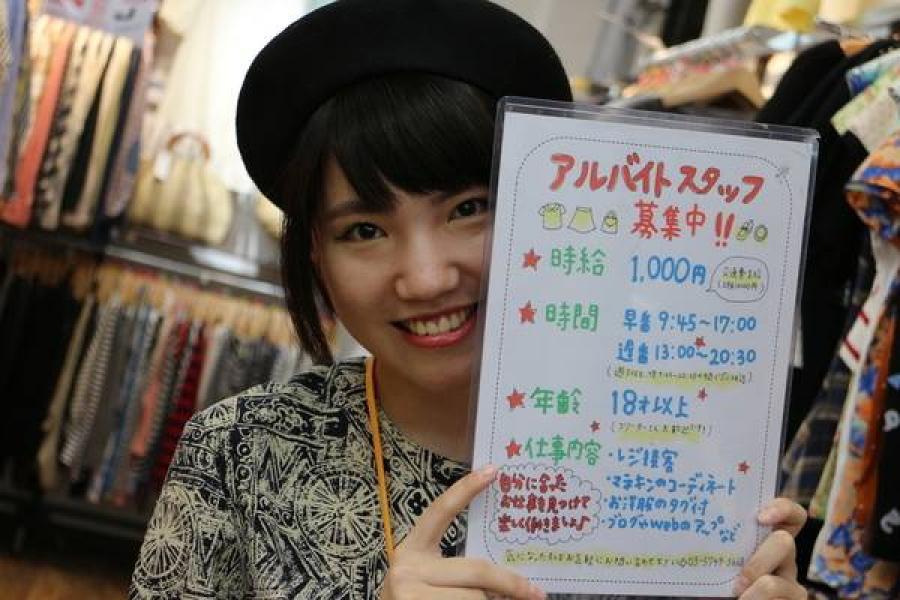 アルバイトスタッフ
募集中!!
★時給 1,000円
★時間 早番 9:45〜17:00
遅番 13:00〜20:30
★年齢 18才以上
★仕事内容 ・レジ接客
・マネキンのコーディネート
・お洋服のタグ付
・ブログやWebのアップなど
自分に合った
お仕事を見つけて
楽しく働きましょ♪